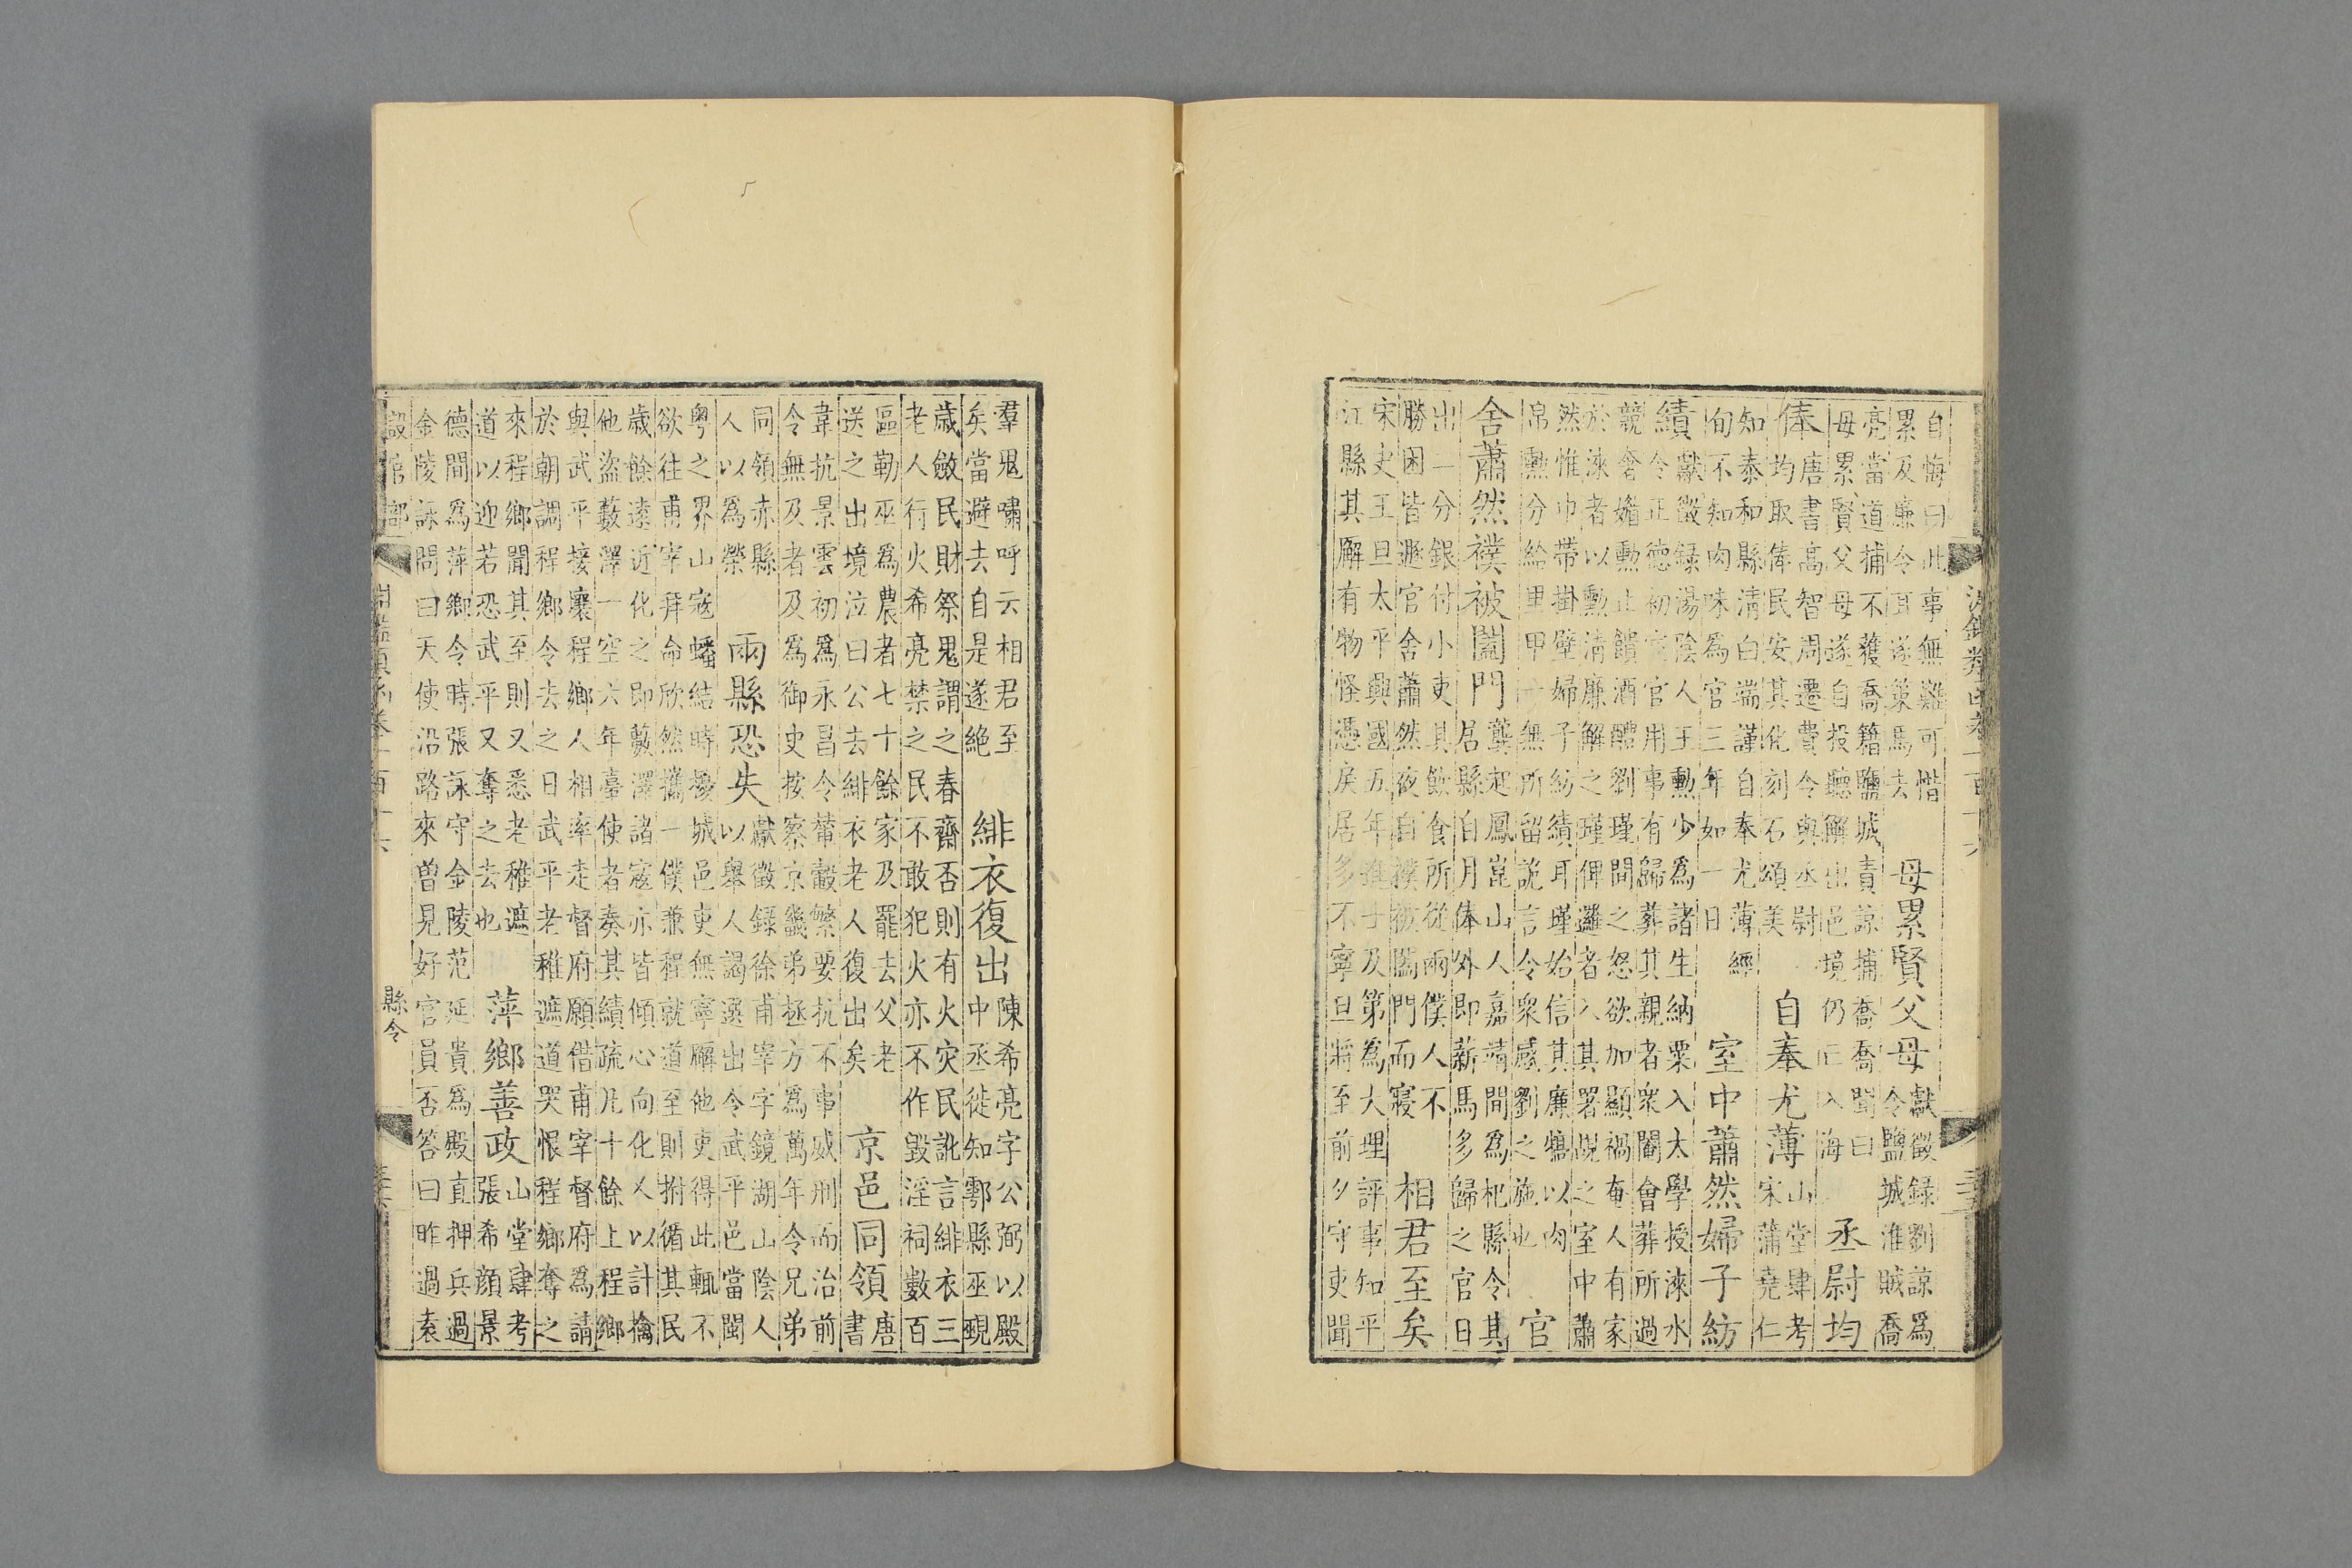 自悔曰此事無難可惜
累及廉令耳遂策馬去
母累賢父母
獻徵録劉諒爲
令鹽城淮賊喬
亮當道捕不獲喬籍鹽城責諒捕喬喬聞曰
母累賢父母遂自投聽解出邑境仍入海
丞尉均
俸
唐書高智周遷費令與丞尉
均取俸民安其化刻石頌美
自奉尤薄
山堂肆考
宋蒲堯仁
知泰和縣清白端謹自奉尤薄經
旬不知肉味爲官三年如一日
室中蕭然婦子紡
績
獻徵録湯陰人王勲少爲諸生納粟入太學授淶水
令正德初官用事有歸葬其親者衆閹會葬所過
競奢媚勲止饋酒醴劉瑾聞之怒欲加顯禍奄人有家
於淶者以勲清廉解之瑾俾邏者入其署覘之室中蕭
然惟巾帶掛壁婦子紡績耳瑾始信其廉犒以肉
帛勲分給里甲一無所留詭言令衆感劉之施也
官
舍蕭然襆被闔門
龔起鳳崑山人嘉靖間爲杞縣令其
居縣自月俸外即薪馬多歸之官日
出一分分銀付小吏具飲食所從兩僕人不
勝困皆遯官舍蕭然夜自襆被闔門而寢
相君至矣
宋史王旦太平興國五年進士及第爲大理評事知平
江縣其廨有物怪憑戾居多不寧旦將至前夕守吏聞
羣鬼嘯呼云相君至
矣當避去自是遂絶
緋衣復出
陳希亮字公弼以殿
中丞徙知鄠縣巫覡
歲斂民財祭鬼謂之春齋否則有火灾民訛言緋衣三
老人行火希亮禁之民不敢犯火亦不作毀淫祠數百
區勒巫爲農者七十餘家及罷去父老
送之出境泣曰公去緋衣老人復出矣
京邑同領
唐
書
韋抗景雲初爲永昌令輦轂繁要抗不事威刑而治前
令無及者及爲御史按察京畿弟拯方爲萬年令兄弟
同領赤縣
人以爲榮
兩縣恐失
獻徵録徐甫宰字鏡湖山陰人
以舉人謁選出令武平邑當閩
粤之界山寇蟠結時擾城邑吏無寧廨他吏得此輒不
欲往甫宰拜命欣然攜一僕兼程就道至則拊循其民
歲餘遠近化之即藪澤諸寇亦皆傾心向化乂以計擒
他盜藪澤一空六年臺使者奏其績疏凡十餘上程鄉
與武平接壤程鄉人相率走督府願借甫宰督府爲請
於朝調程鄉令去之日武平老稚遮道哭恨程鄉奪之
來程鄉聞其至則又悉老稚遮
道以迎若恐武平又奪之去也
萍鄉善政
山堂肆考
張希顔景
德間爲萍鄉令時張詠守金陵范延貴爲殿直押兵過
金陵詠問曰天使沿路來曾見好官員否答曰昨過袁
設官部
縣令